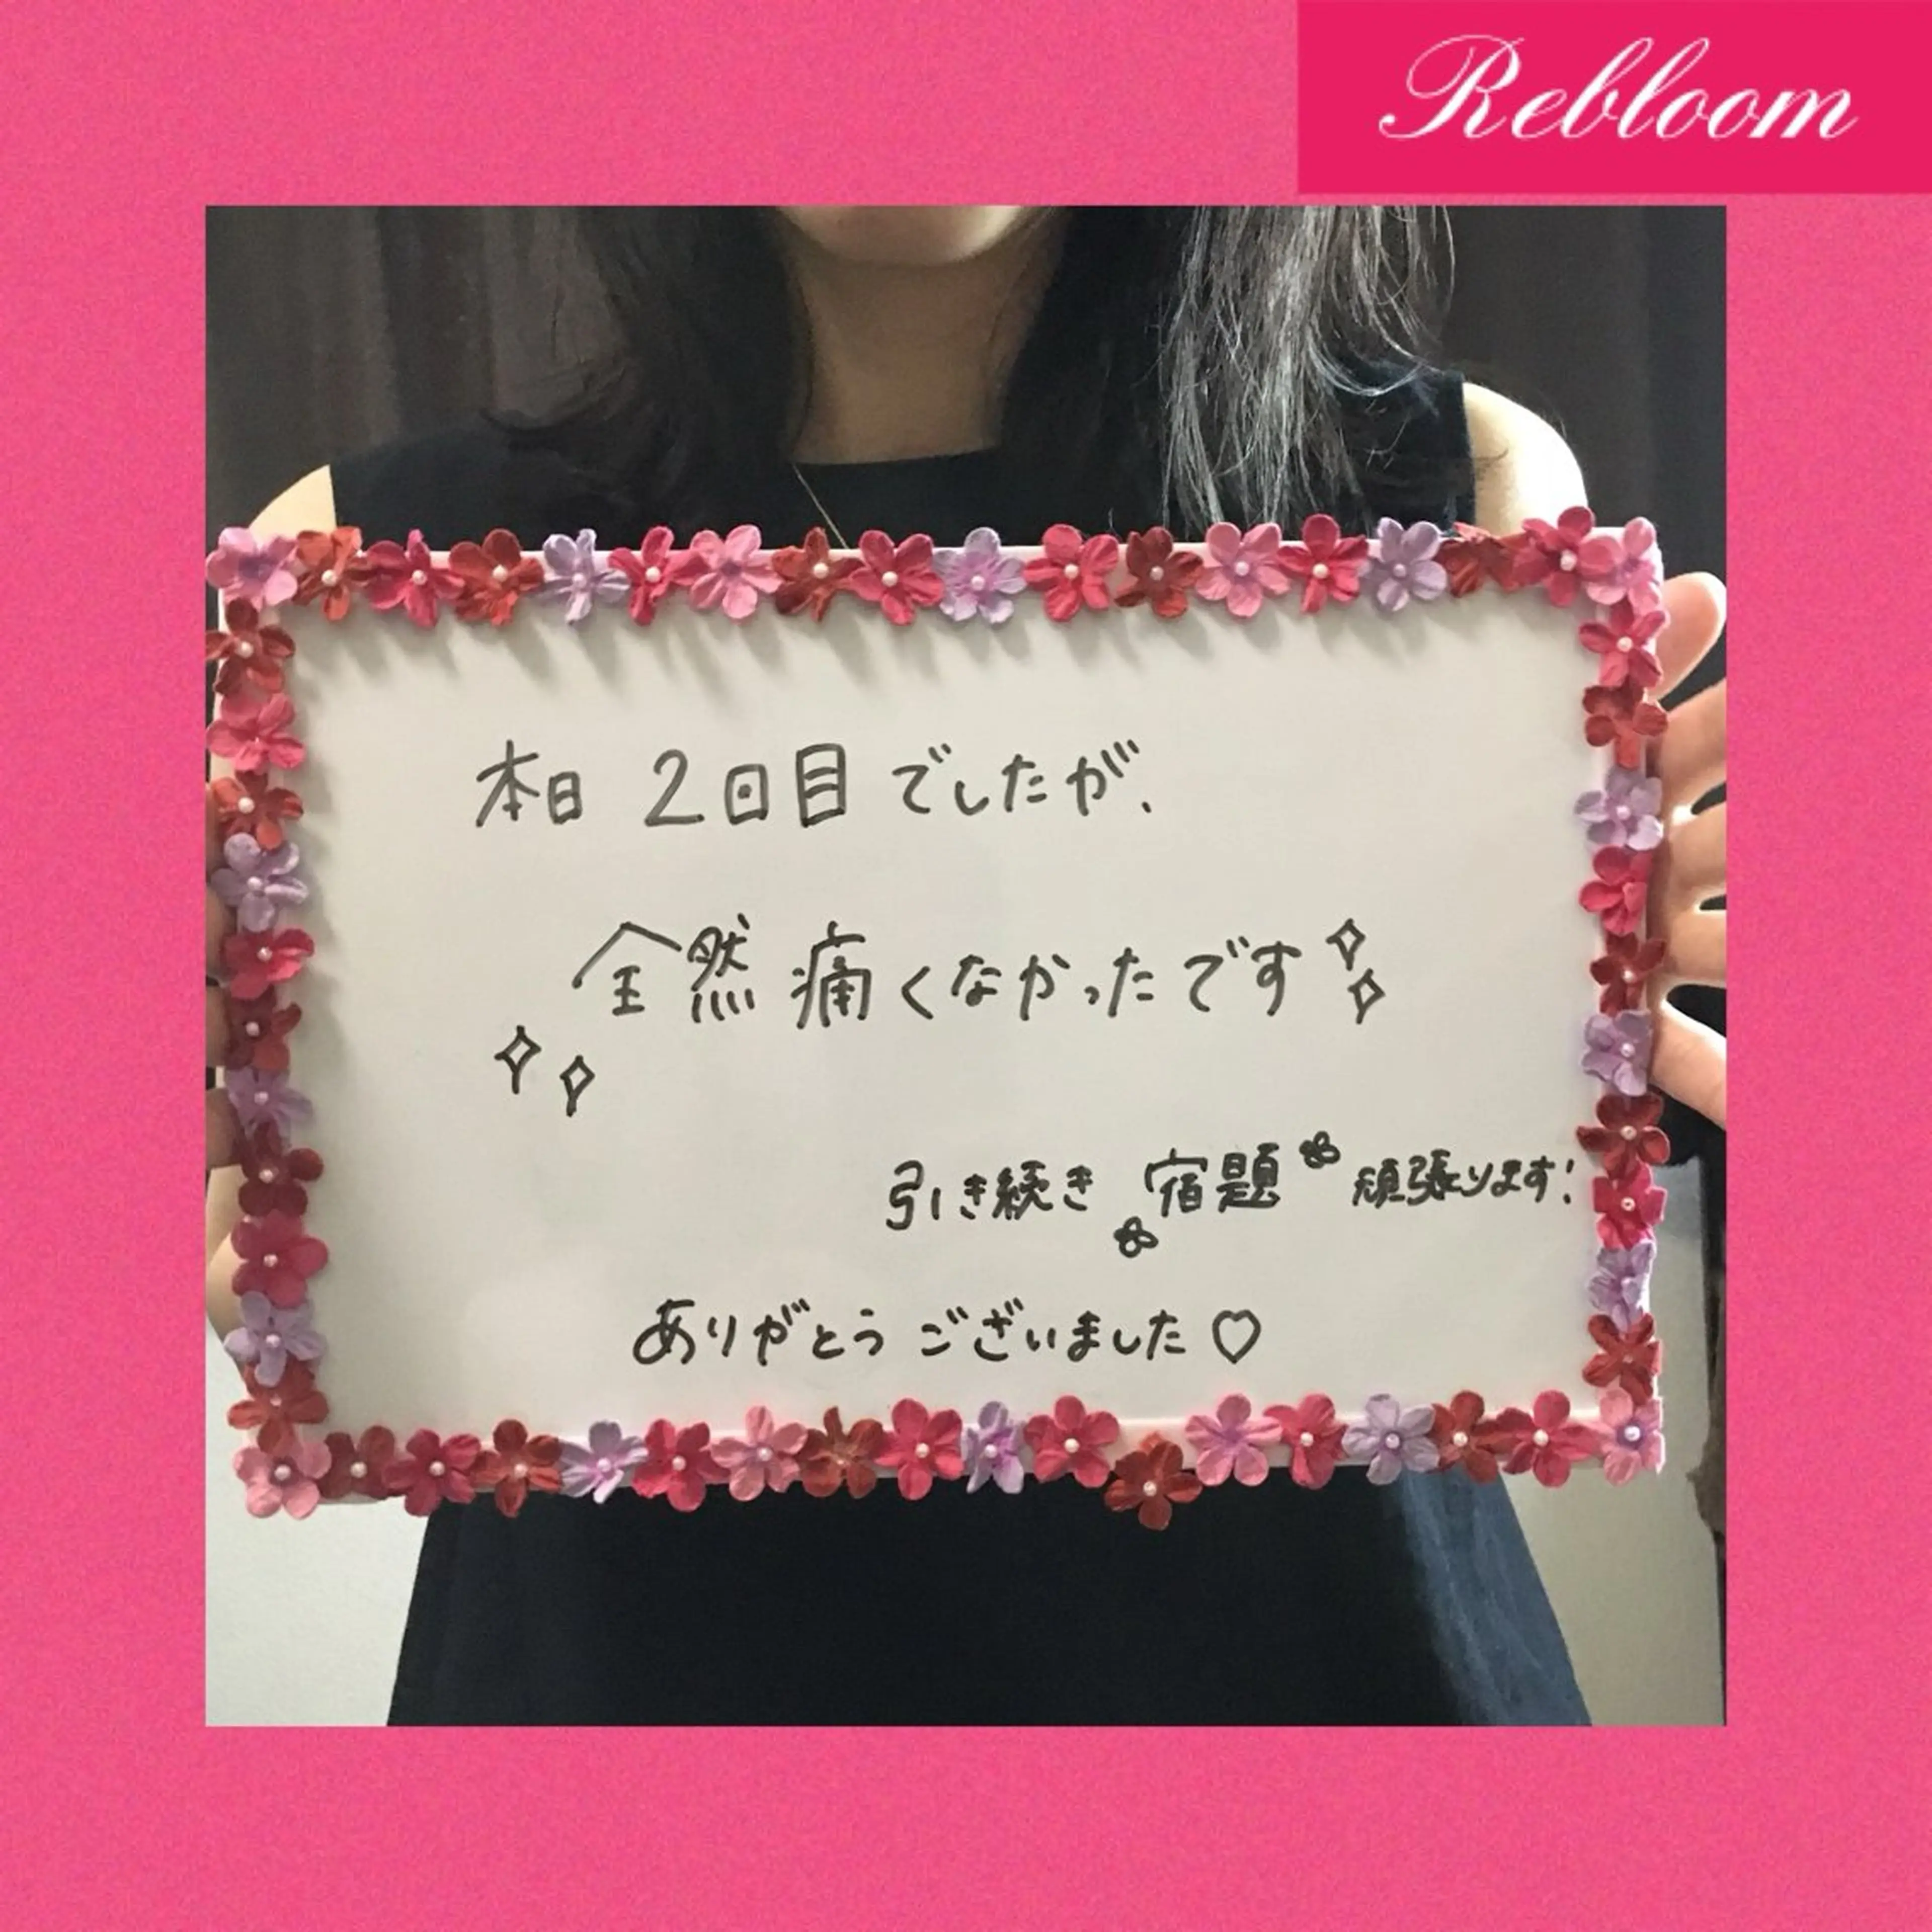 Rebloom
本日 2回目でしたが、
全然 痛くなかったです
引き続き 宿題 頑張ります!
ありがとう ございました♡